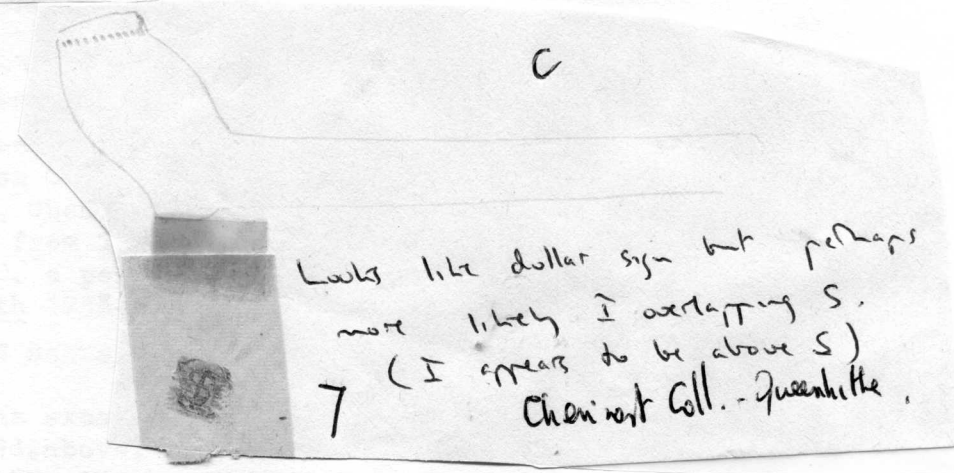 C
Looks like dollar sign but perhaps
more likely I overlapping S.
(I appears to be above S)
7
Coll. - Queenhithe.